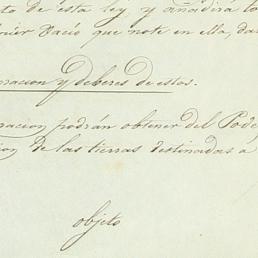 to de esta ley y añadirá to
quier vacío que note en ella, da
nacion y deberes de estos.
nacion podrán obtener del Pode
ion de las tierras destinadas á
objeto